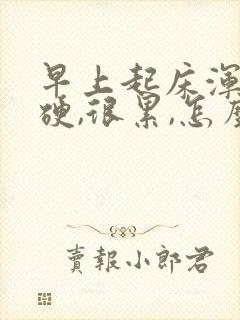 早上起床渾
硬,很累,怎
賣報小郎君